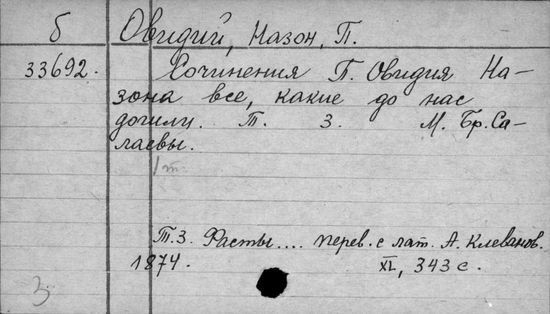 б
Овидий, Назон, П.
33692.
Сочинения П. Овидия На-
зона все, какие до нас
дошли. Т. 3. М. Бр. Са-
лаевы.
1 т.
Т. 3. Фасты.... перев. с лат. А. Клеванов.
1874. XI, 343 с.
3